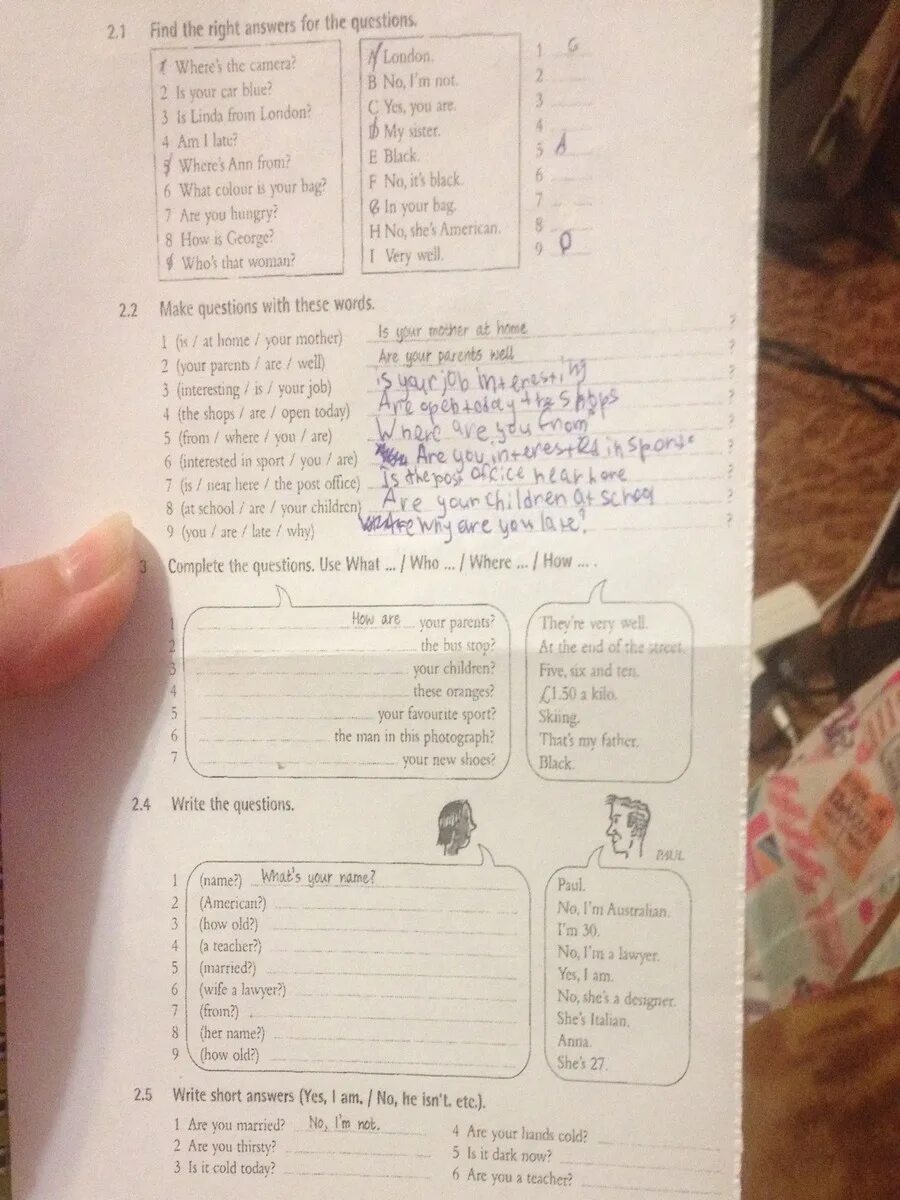 2.1 Find the right answers for the questions.
1 Where's the camera?
2 Is your car blue?
3 Is Linda from London?
4 Am I late?
5 Where's Ann from?
6 What colour is your bag?
7 Are you hungry?
8 How is George?
9 Who's that woman?
A London.
B No, I'm not.
C Yes, you are.
D My sister.
E Black.
F No, it's black.
G In your bag.
H No, she's American.
I Very well.
1 G
2
3
4
5 A
6
7
8
9 D
2.2 Make questions with these words.
1 (is / at home / your mother) Is your mother at home ?
2 (your parents / are / well) Are your parents well ?
3 (interesting / is / your job) is your job interesting ?
4 (the shops / are / open today) Are open today the shops ?
5 (from / where / you / are) Where are you from ?
6 (interested in sport / you / are) Are you interested in sport ?
7 (is / near here / the post office) Is the post office near here ?
8 (at school / are / your children) Are your children at school ?
9 (you / are / late / why) why are you late? ?
3 Complete the questions. Use What ... / Who ... / Where ... / How ... .
1 How are your parents?
2 the bus stop?
3 your children?
4 these oranges?
5 your favourite sport?
6 the man in this photograph?
7 your new shoes?
They're very well.
At the end of the street.
Five, six and ten.
£1.50 a kilo.
Skiing.
That's my father.
Black.
2.4 Write the questions.
PAUL
1 (name?) What's your name?
2 (American?)
3 (how old?)
4 (a teacher?)
5 (married?)
6 (wife a lawyer?)
7 (from?)
8 (her name?)
9 (how old?)
Paul.
No, I'm Australian.
I'm 30.
No, I'm a lawyer.
Yes, I am.
No, she's a designer.
She's Italian.
Anna.
She's 27.
2.5 Write short answers (Yes, I am. / No, he isn't. etc.).
1 Are you married? No, I'm not.
2 Are you thirsty?
3 Is it cold today?
4 Are your hands cold?
5 Is it dark now?
6 Are you a teacher?